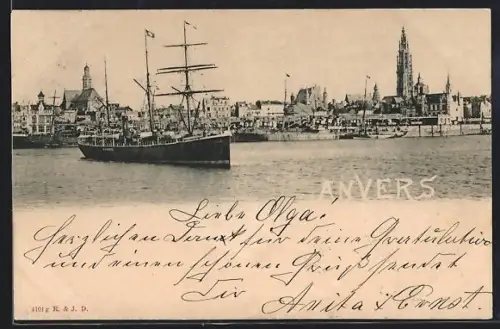 ANVERS
Liebe Olga!
Herzlichen Dank für deine Gratulation
und einen schönen Gruß sendet
Dir Anita & Ernst.
4101g R. & J. D.